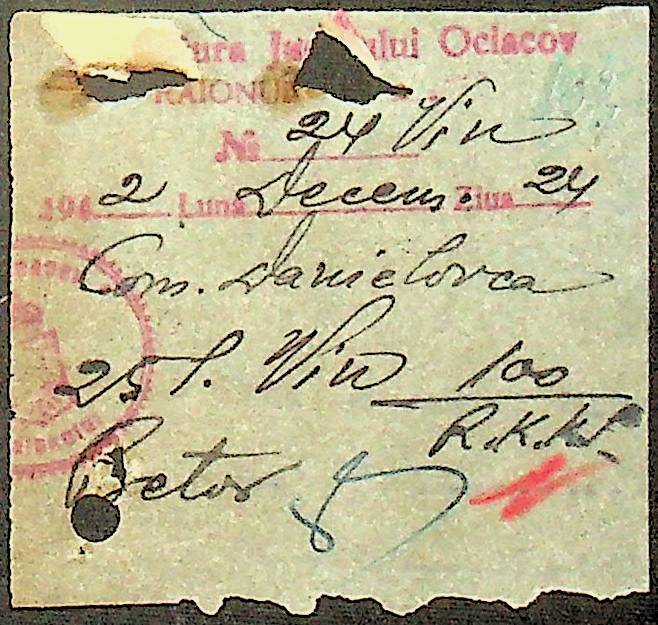 ura Ju ului Ociacov
RAIONU
№ 24 Vin
194 2 Luna Decem. Ziua 24
Com. Danielovca
25 l. Vin 100
R.K.K.